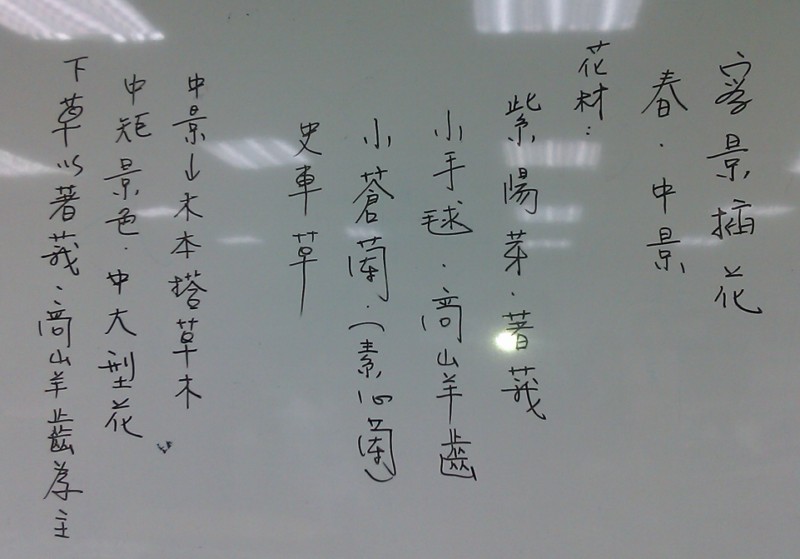 寫景插花
春．中景
花材：
紫陽芽．蓍莪
小手毬．高山羊齒
小蒼蘭．（素心蘭）
史車草
中景以木本搭草木
中矩景色．中大型花
下草以蓍莪．高山羊齒為主